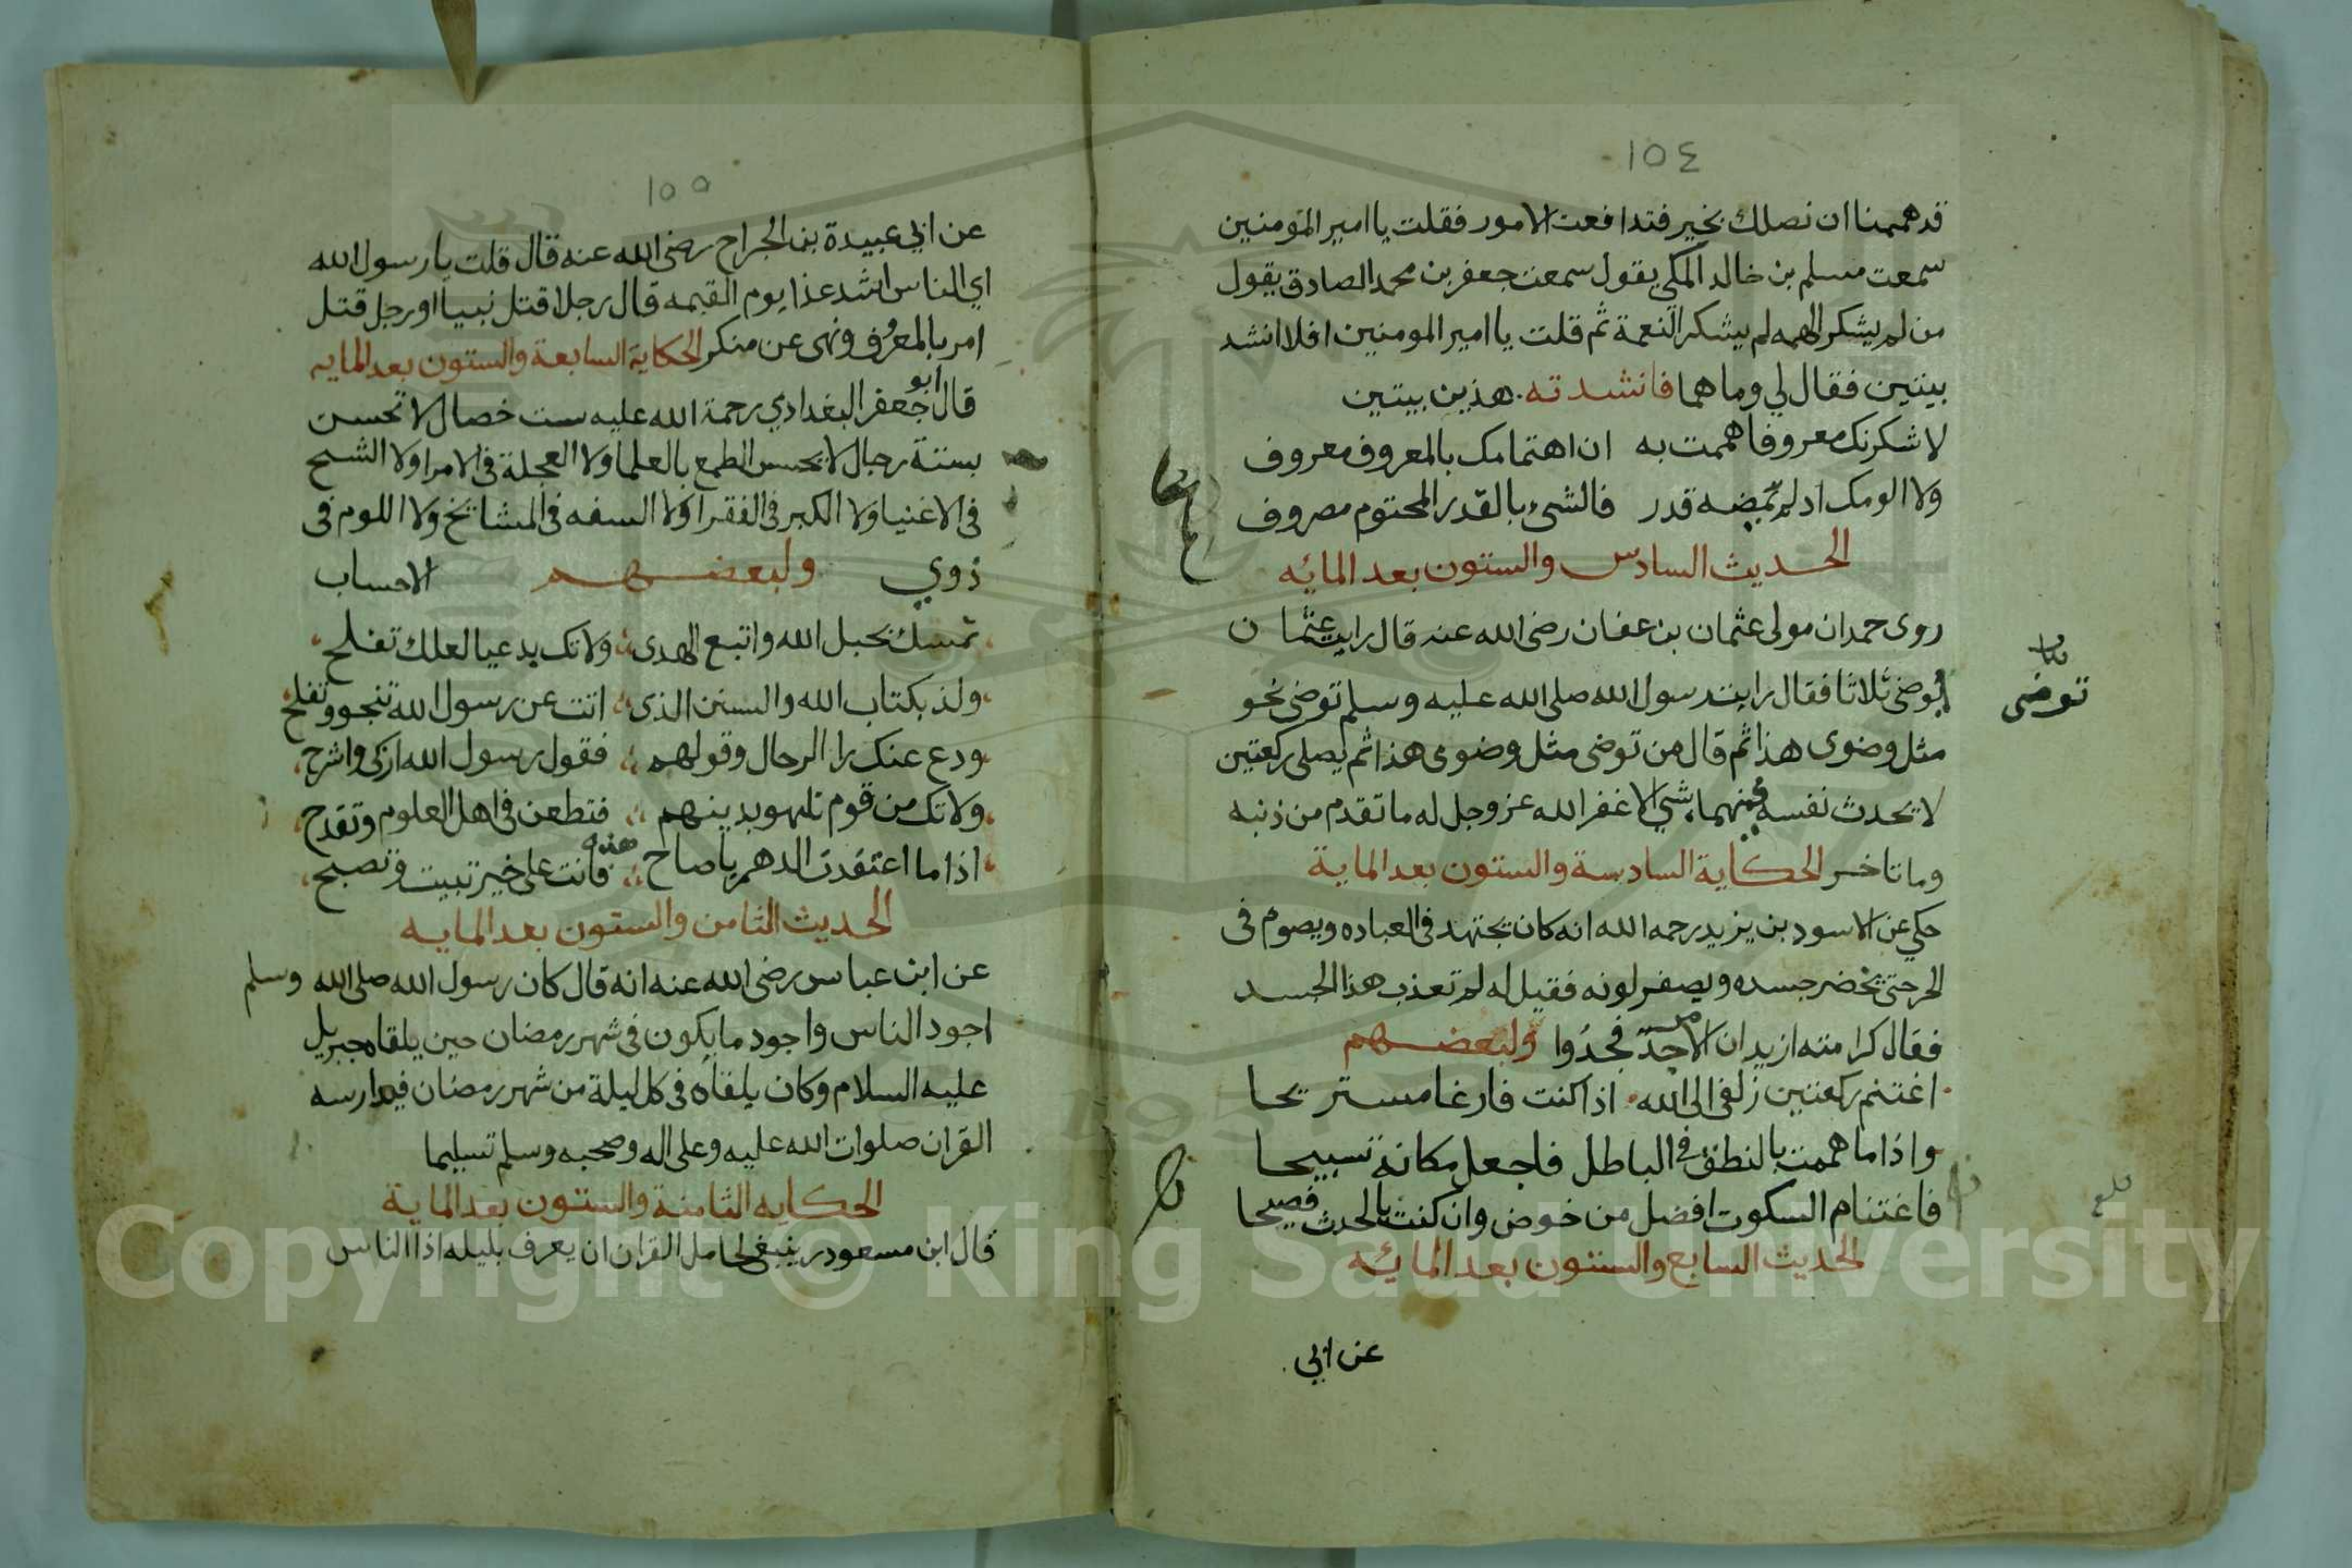 ١٥٤
قد هممنا ان نصلك بخير فتدافعت الامور فقلت يا امير المؤمنين
سمعت مسلم بن خالد المكي يقول سمعت جعفر بن محمد الصادق يقول
من لم يشكر الهمه لم يشكر النعمة ثم قلت يا امير المومنين افلا انشد
بيتين فقال لي وما هما فانشدته هذين بيتين
لاشكرنك معروفا هممت به ان اهتمامك بالمعروف معروف
ولا الومك اذ لم يمضه قدر فالشيء بالقدر المحتوم مصروف
الحديث السادس والستون بعد المائه
روى حمدان مولى عثمان بن عفان رضى الله عنه قال رايت عثمان
توضى
توضى ثلاثا فقال رايت رسول الله صلى الله عليه وسلم توضى نحو
مثل وضوى هذا ثم قال من توضى مثل وضوى هذا ثم يصلى ركعتين
لا يحدث نفسه فيهما بشي الا غفر الله عز وجل له ما تقدم من ذنبه
وما تاخر الحكاية السادسة والستون بعد الماية
حكي عن الاسود بن يزيد رحمه الله انه كان يجتهد في العباده ويصوم فى
الحر حتى يخضر جسده ويصفر لونه فقيل له لم تعذب هذا الجسد
فقال كرامته ازيد ان الامر جد فجدوا ولبعضهم
اغتنم ركعتين زلفى الى الله اذا كنت فارغا مستريحا
واذا ما هممت بالنطق في الباطل فاجعل مكانه تسبيحا
فاغتنام السكوت افضل من خوض وان كنت بالحدث فصيحا
الحديث السابع والستون بعد المائه
عن ابي
١٥٥
عن ابي عبيدة بن الجراح رضى الله عنه قال قلت يا رسول الله
اي الناس اشد عذا يوم القيمه قال رجلا قتل نبيا او رجل قتل
امر بالمعروف ونهى عن منكر الحكاية السابعة والستون بعد المايه
قال ابو جعفر البغدادي رحمة الله عليه ست خصال لا تحسن
بستة رجال لا يحسن الطمع بالعلما ولا العجلة في الامرا ولا الشح
في الاغنيا ولا الكبر في الفقرا ولا السفه في المشايخ ولا اللوم فى
ذوي الاحساب ولبعضهم
تمسك بحبل الله واتبع الهدى ولا تك بدعيا لعلك تفلح
ولذ بكتاب الله والسنن الذى اتت عن رسول الله تنجو وتفلح
ودع عنك را الرجال وقولهم فقول رسول الله ازكى واشرح
ولا تك من قوم تلهو بدينهم فتطعن في اهل العلوم وتقدح
اذا ما اعتقدت الدهر يا صاح هذه فانت على خير تبيت وتصبح
الحديث الثامن والستون بعد المايه
عن ابن عباس رضى الله عنه انه قال كان رسول الله صلى الله وسلم
اجود الناس واجود ما يكون في شهر رمضان حين يلقاه جبريل
عليه السلام وكان يلقاه في كل ليلة من شهر رمضان فيدارسه
القران صلوات الله عليه وعلى اله وصحبه وسلم تسليما
الحكايه الثامنة والستون بعد الماية
قال ابن مسعود ر ينبغي لحامل القران ان يعرف بليله اذا الناس
Copyright © King Saud University